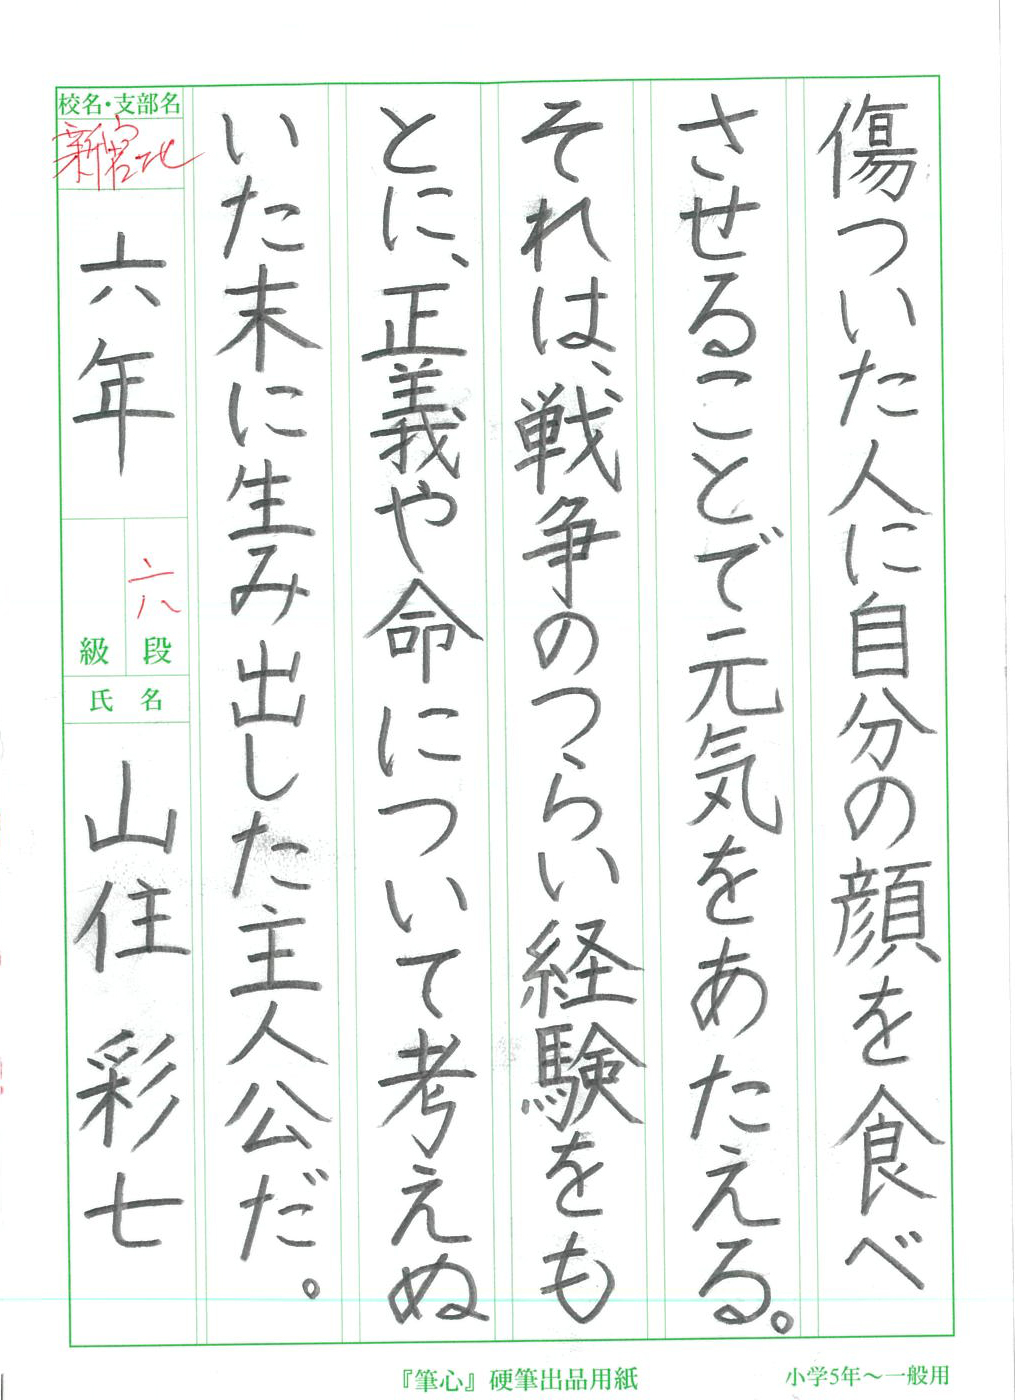 傷ついた人に自分の顔を食べ
させることで元気をあたえる。
それは、戦争のつらい経験をも
とに、正義や命について考えぬ
いた末に生み出した主人公だ。
校名・支部名
新宮北
六年
六
級 段
氏名
山住 彩七
『筆心』硬筆出品用紙
小学5年～一般用